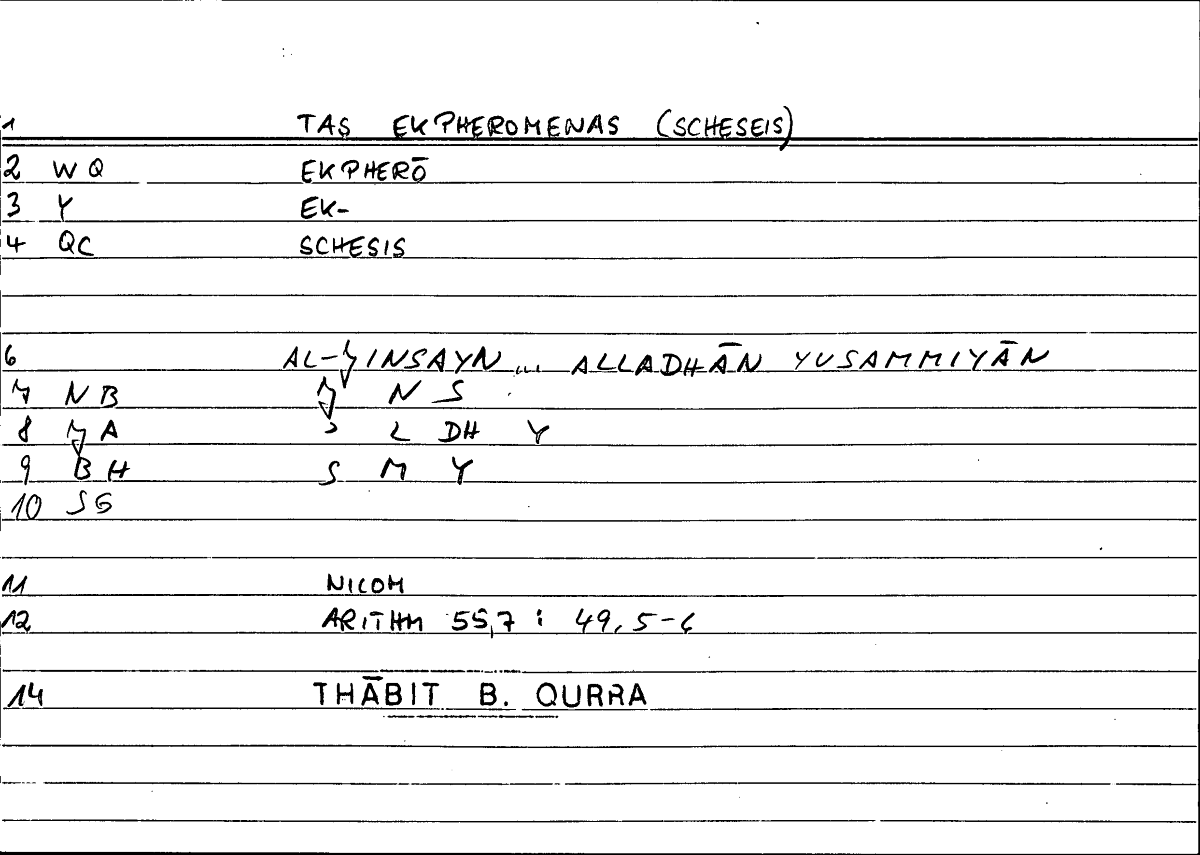 1 TAS EKPHEROMENAS (SCHESEIS)
2 WQ EKPHERŌ
3 Y EK-
4 QC SCHESIS
6 AL-JINSAYN ... ALLADHĀN YUSAMMIYĀN
7 NB J N S
8 JA ʾ L DH Y
9 BH S M Y
10 SG
11 NICOM
12 ARITHM 55,7 : 49,5-6
14 THĀBIT B. QURRA